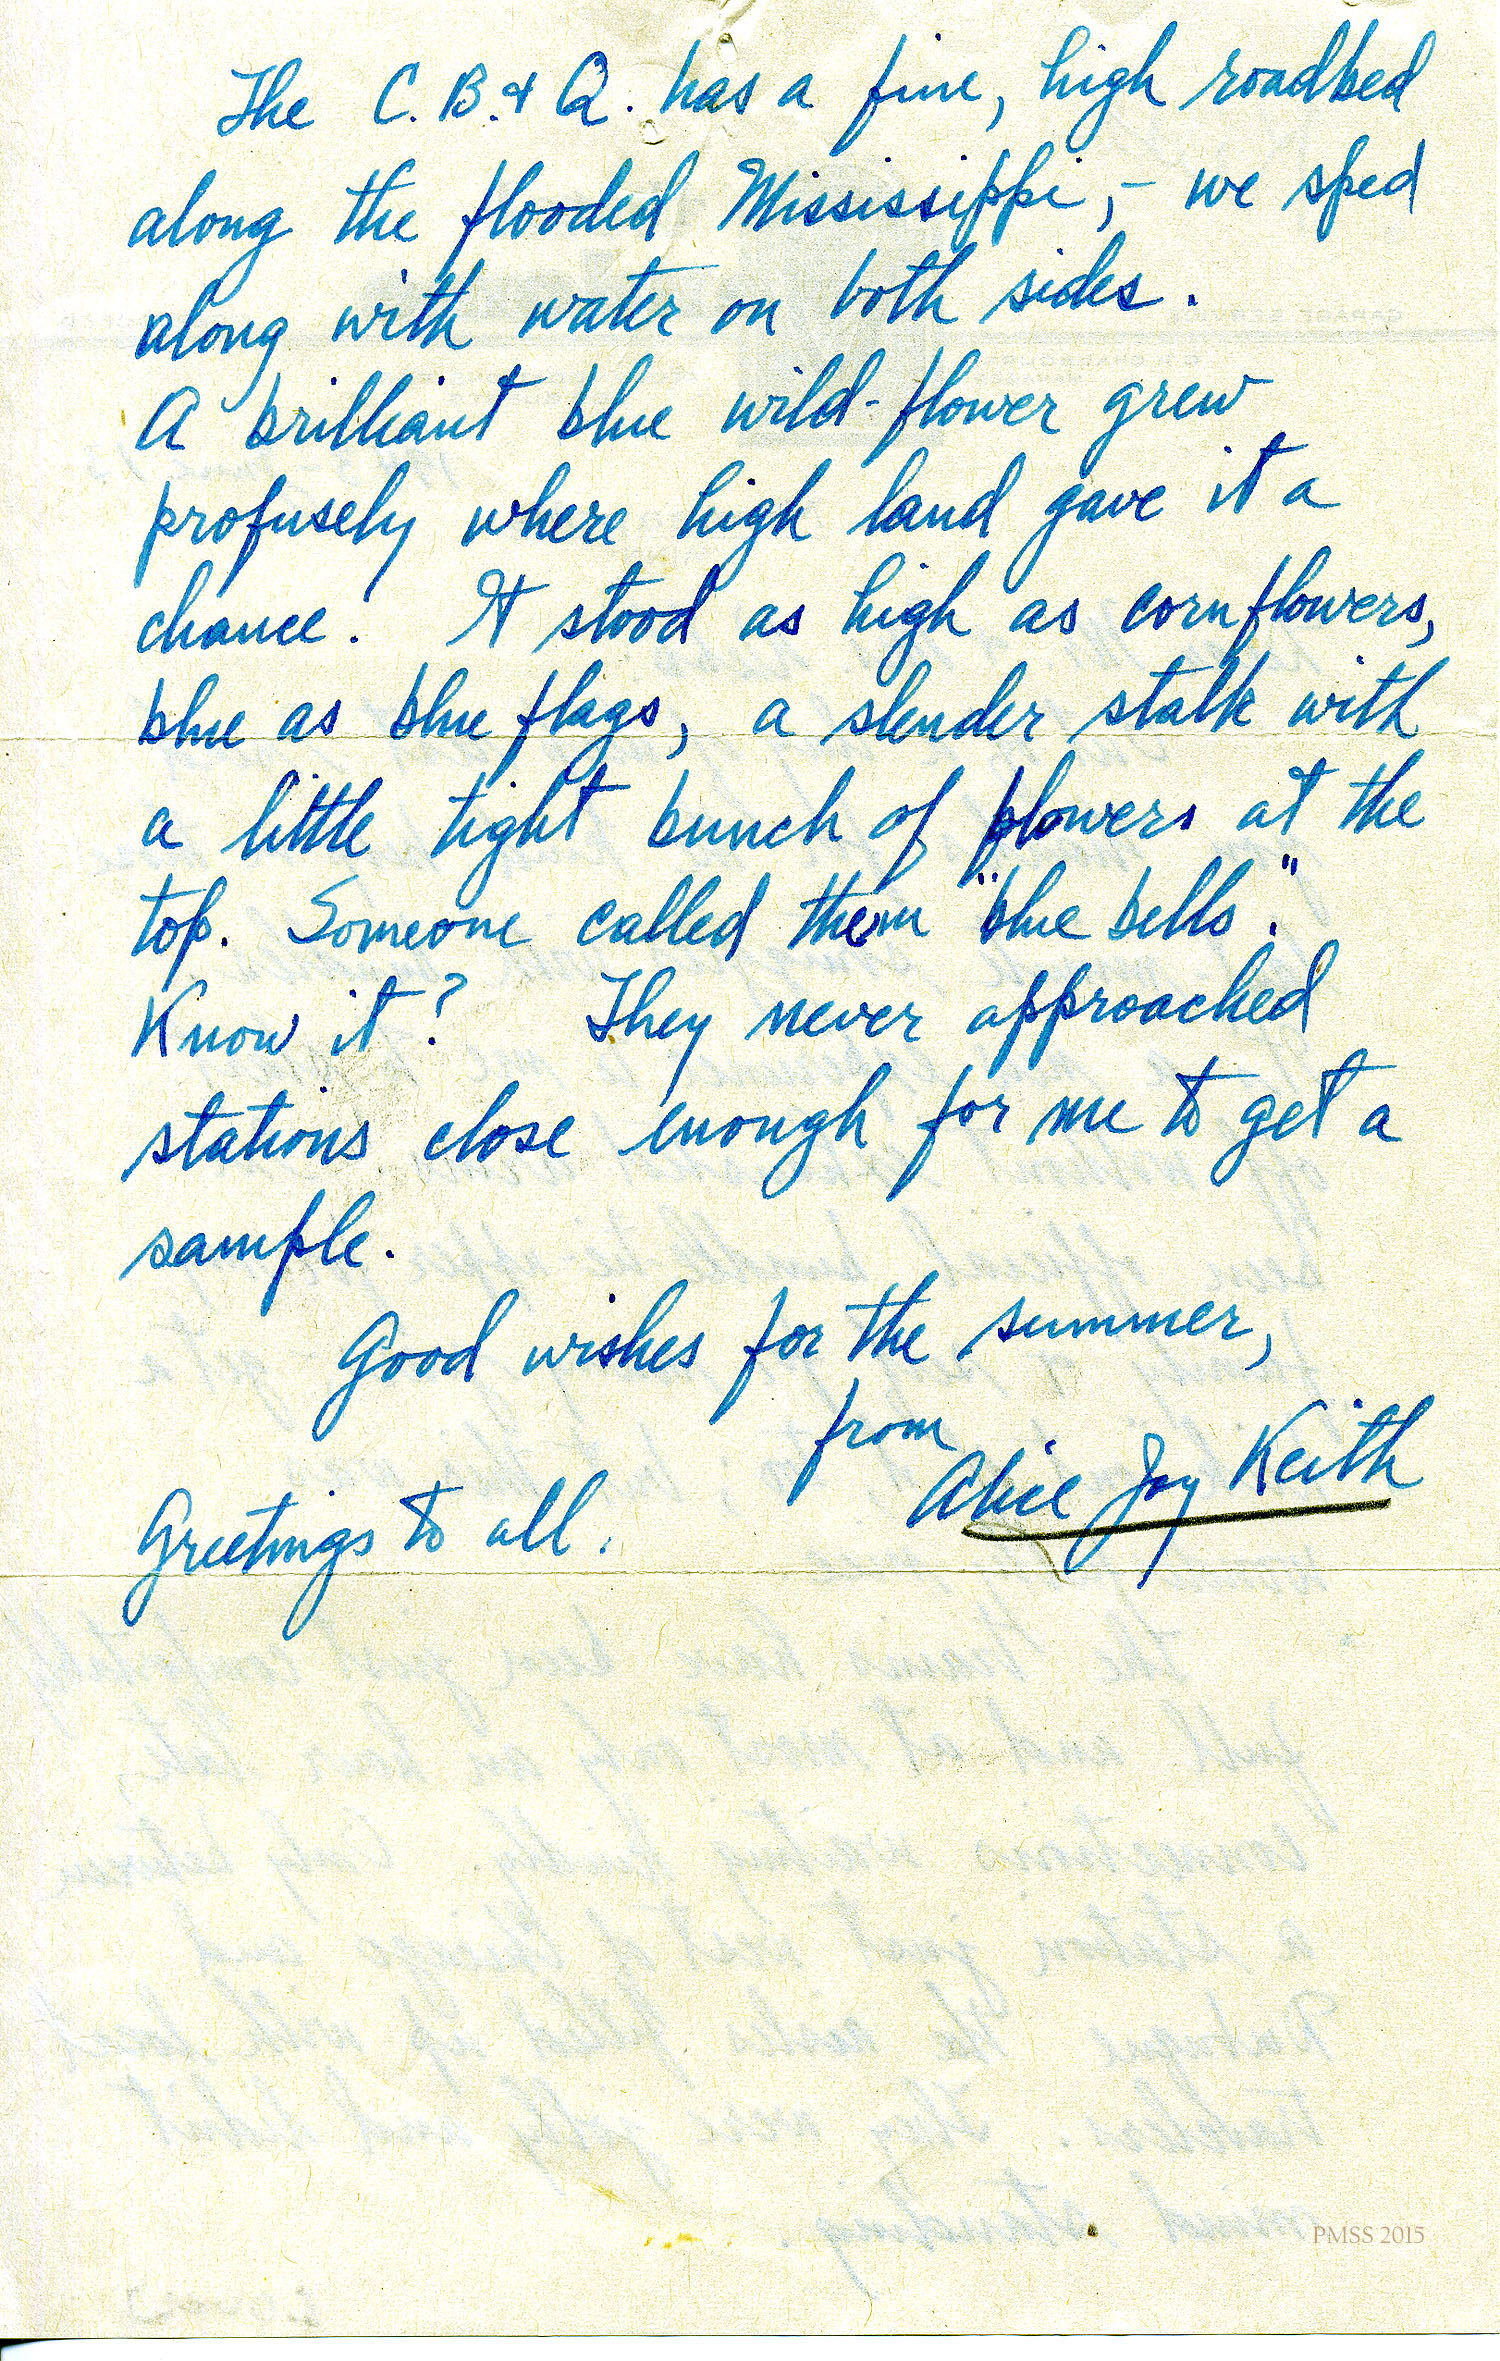 The C. B. & Q. has a fine, high roadbed
along the flooded Mississippi, - we sped
along with water on both sides.
A brilliant blue wild-flower grew
profusely where high land gave it a
chance. It stood as high as cornflowers,
blue as blue flags, a slender stalk with
a little tight bunch of flowers at the
top. Someone called them "blue bells."
Know it? They never approached
stations close enough for me to get a
sample.
Good wishes for the summer,
from
Alice Joy Keith
Greetings to all.
PMSS 2015